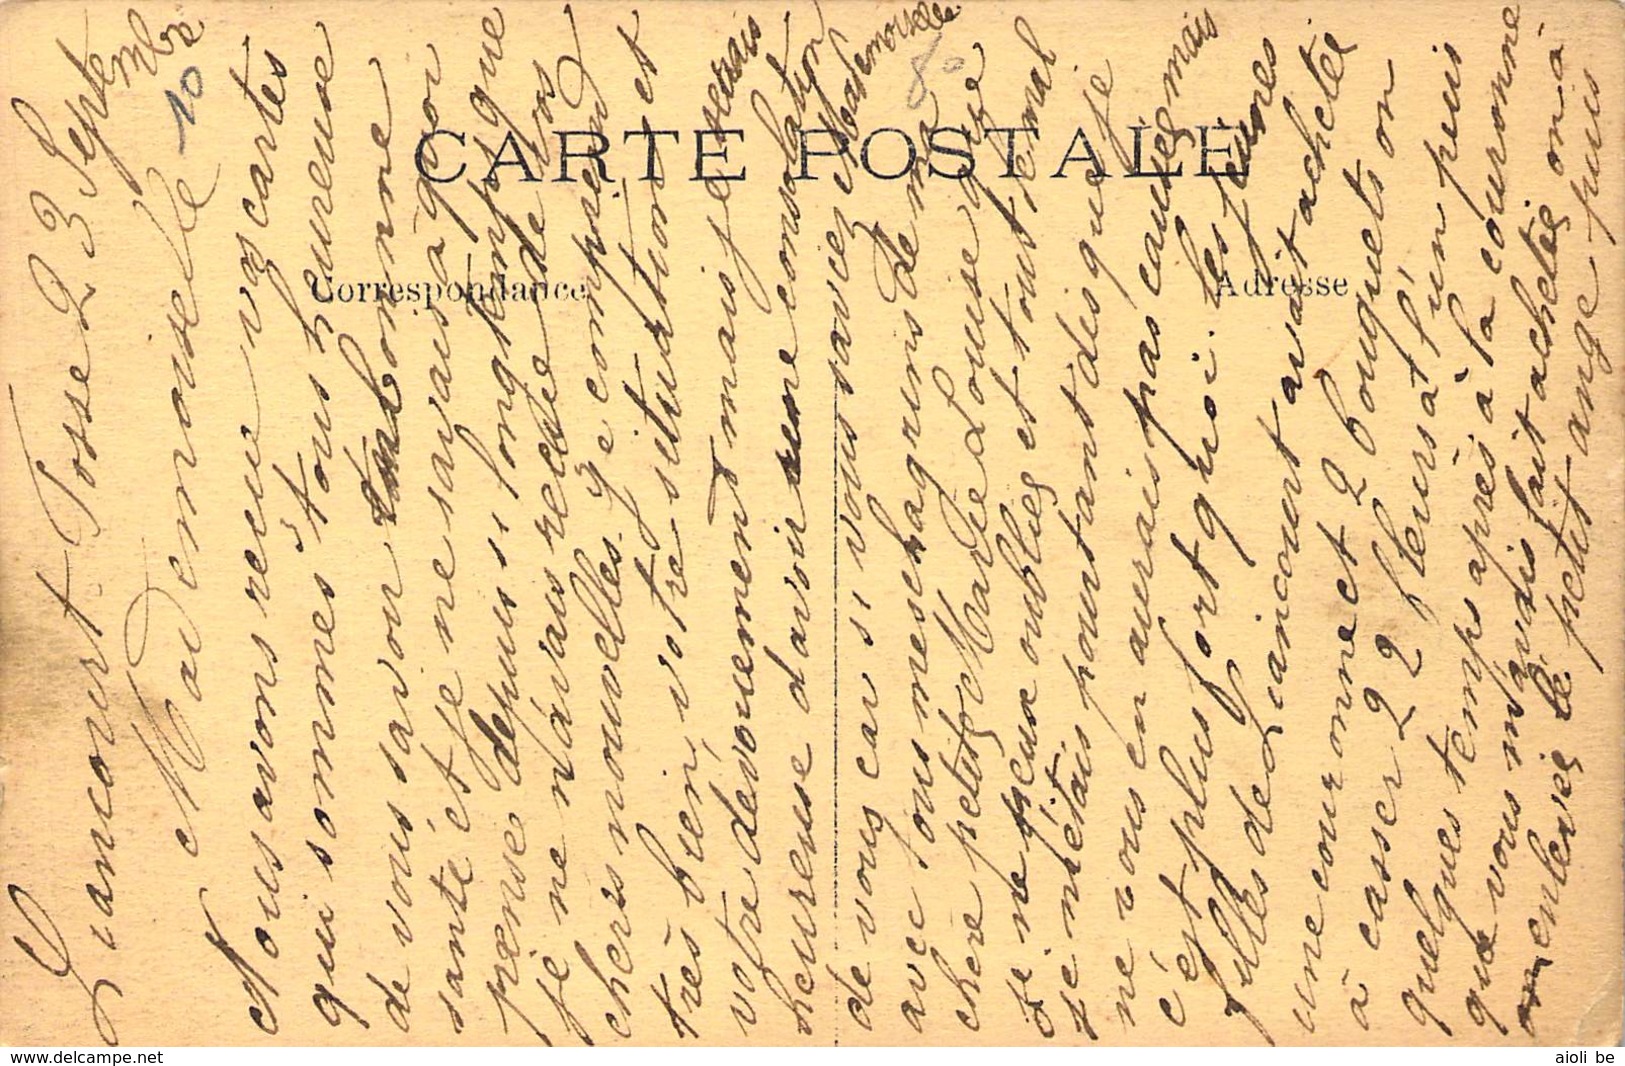 CARTE POSTALE
Correspondance
Adresse
Liancourt Fosse 23 Septembre
Mademoiselle
10
80
Nous avons reçue vos cartes
qui sommes tous heureuse
de vous savoir en bonne
santé et je ne savais à quoi
pensé depuis si longtemps que
je ne n'avais recue de vos
chers nouvelles. Je comprend
très bien, votre situation et
votre dévouement mais je serais
heureuse d'avoir une consolation
de vous car si vous savez Mademoiselle
avec tous mes chagrins de ma
chère petite Marie Louise que
je ne peux oubliez et tout le mal
que je m'étais pourtant dis que je
ne vous en aurais pas causez mais
c'est plus fort que moi. les jeunes
filles de Liancourt avait achetée
une couronne et 2 bouquets on
à casser 22 fleurs à l'un puis
quelques temps après à la couronne
que vous m'avais fait achetez on à
enlevez le petit ange puis